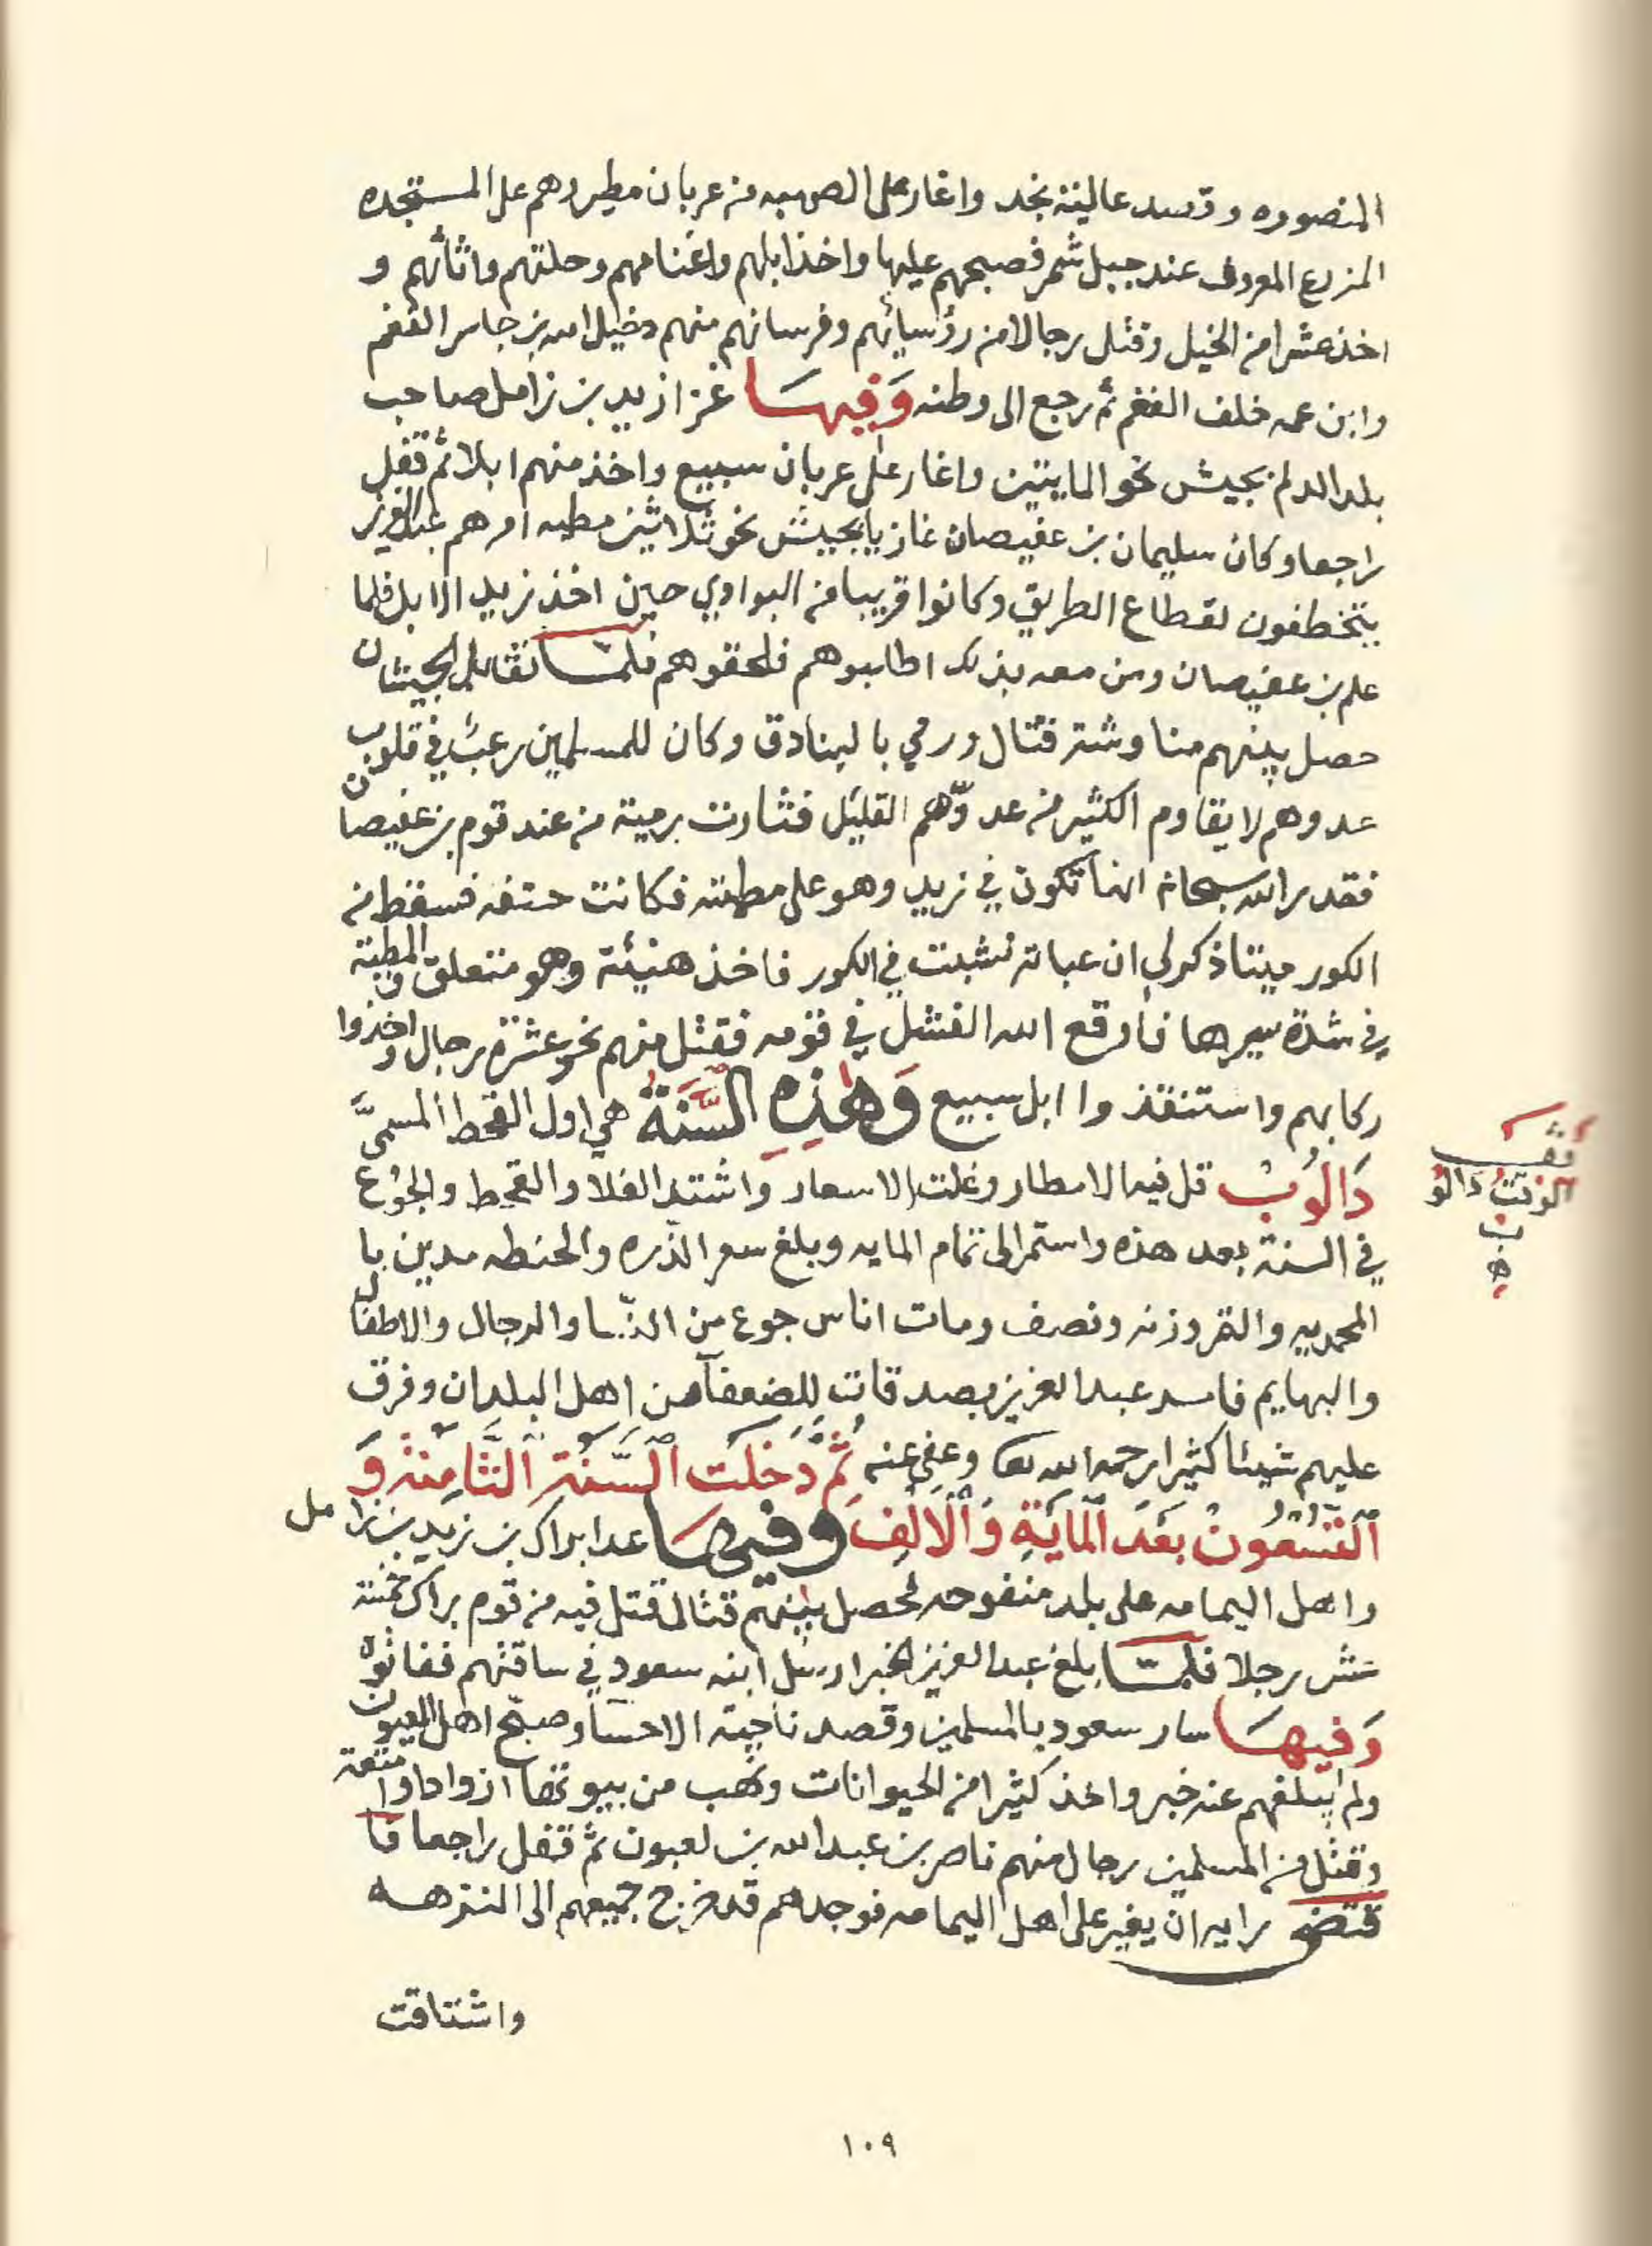 المنصوره وقصد عالية نجد واغار على الصهبه من عربان مطير وهم على المستجده
المزرع المعروف عند جبل شمر فصبحهم عليها واخذ ابلهم واغنامهم وحلتهم واثاثهم و
اخذ عشرا من الخيل وقتل رجالا من رؤسائهم وفرسانهم منهم دخيل الله بن جاسر الفغم
وابن عمه خلف الفغم ثم رجع الى وطنه وَفِيهَا غزا زيد بن زامل صاحب
بلد الدلم بجيش نحو المايتين واغار على عربان سبيع واخذ منهم ابلا ثم قفل
راجعا وكان سليمان بن عفيصان غازيا بجيش نحو ثلاثين مطيه امرهم عبدالعزيز
يتخطفون لقطاع الطريق وكانوا قريبا من البوادي حين اخذ زيد الابل فلما
علم بن عفيصان ومن معه بذلك اطلبوهم فلحقوهم فلمّا تقابل الجيشان
حصل بينهم مناوشة قتال ورمي بالبنادق وكان للمسلمين رعب في قلوب
عدوهم لا يقاوم الكثير من عدوّهم القليل فثارت برمية من عند قوم بن عفيصان
فقدر الله سبحانه انها تكون في زيد وهو على مطيته فكانت حتفه فسقط من
الكور ميتا ذكر لي ان عباته نشبت في الكور فاخذ هنيئة وهو متعلق والمطية
في شدة سيرها فأوقع الله الفشل في قومه فقتل منهم نحو عشرة رجال واخذوا
ركابهم واستنقذوا ابل سبيع وَهٰذِهِ السَّنَةُ هي اول القحط المسمىَّ
دَالُوبْ قل فيها الامطار وغلت الاسعار واشتد الغلا والقحط والجوع
في السنة بعد هذه واستمر الى تمام المايه وبلغ سعر الذّره والحنطه مدين با
المحمديه والتمر وزنه ونصف ومات اناس جوع من النّسا والرجال والاطفال
والبهايم فامد عبد العزيز بصدقات للضعفآ من اهل البلدان وفرق
عليهم شيئا كثيرا رحمه الله تعا وعفى عنه ثُمَّ دَخَلَت السَّنَةِ الثَّامِنَةِ وَ
التِّسْعُونْ بَعْدَ المايَةِ وَالْأَلِفْ وفيها عدا براك بن زيد بن زامل
واهل اليمامه على بلد منفوحه فحصل بينهم قتال قتل فيه من قوم براك خمسة
عشر رجلا فلمّا بلغ عبدالعزيز الخبر ارسل ابنه سعود في ساقتهم ففاتوه
وَفيهَا سار سعود بالمسلمين وقصد ناحية الاحسآ وصبّح اهل العيون
ولم يبلغهم عنه خبر واخذ كثيرا من الحيوانات ونهب من بيوتها ازوادا وامتعة
وقتل من المسلمين رجال منهم ناصر بن عبد الله بن لعبون ثم قفل راجعا فا
قتضى رايه ان يغير على اهل اليمامه فوجدهم قد خرج جميعهم الى النزهه
واشتاقت
١٠٩